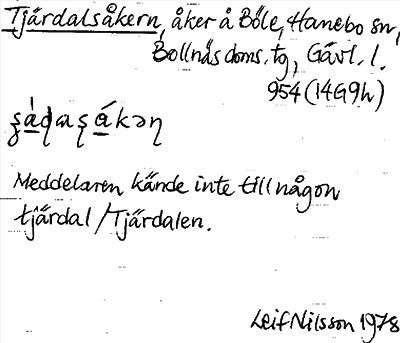 Tjärdalsåkern, åker å Böle, Hanebo sn,
Bollnäs doms. tg, Gävl. l.
954 (14G9h)
Meddelaren kände inte till någon
tjärdal/Tjärdalen.
Leif Nilsson 1978